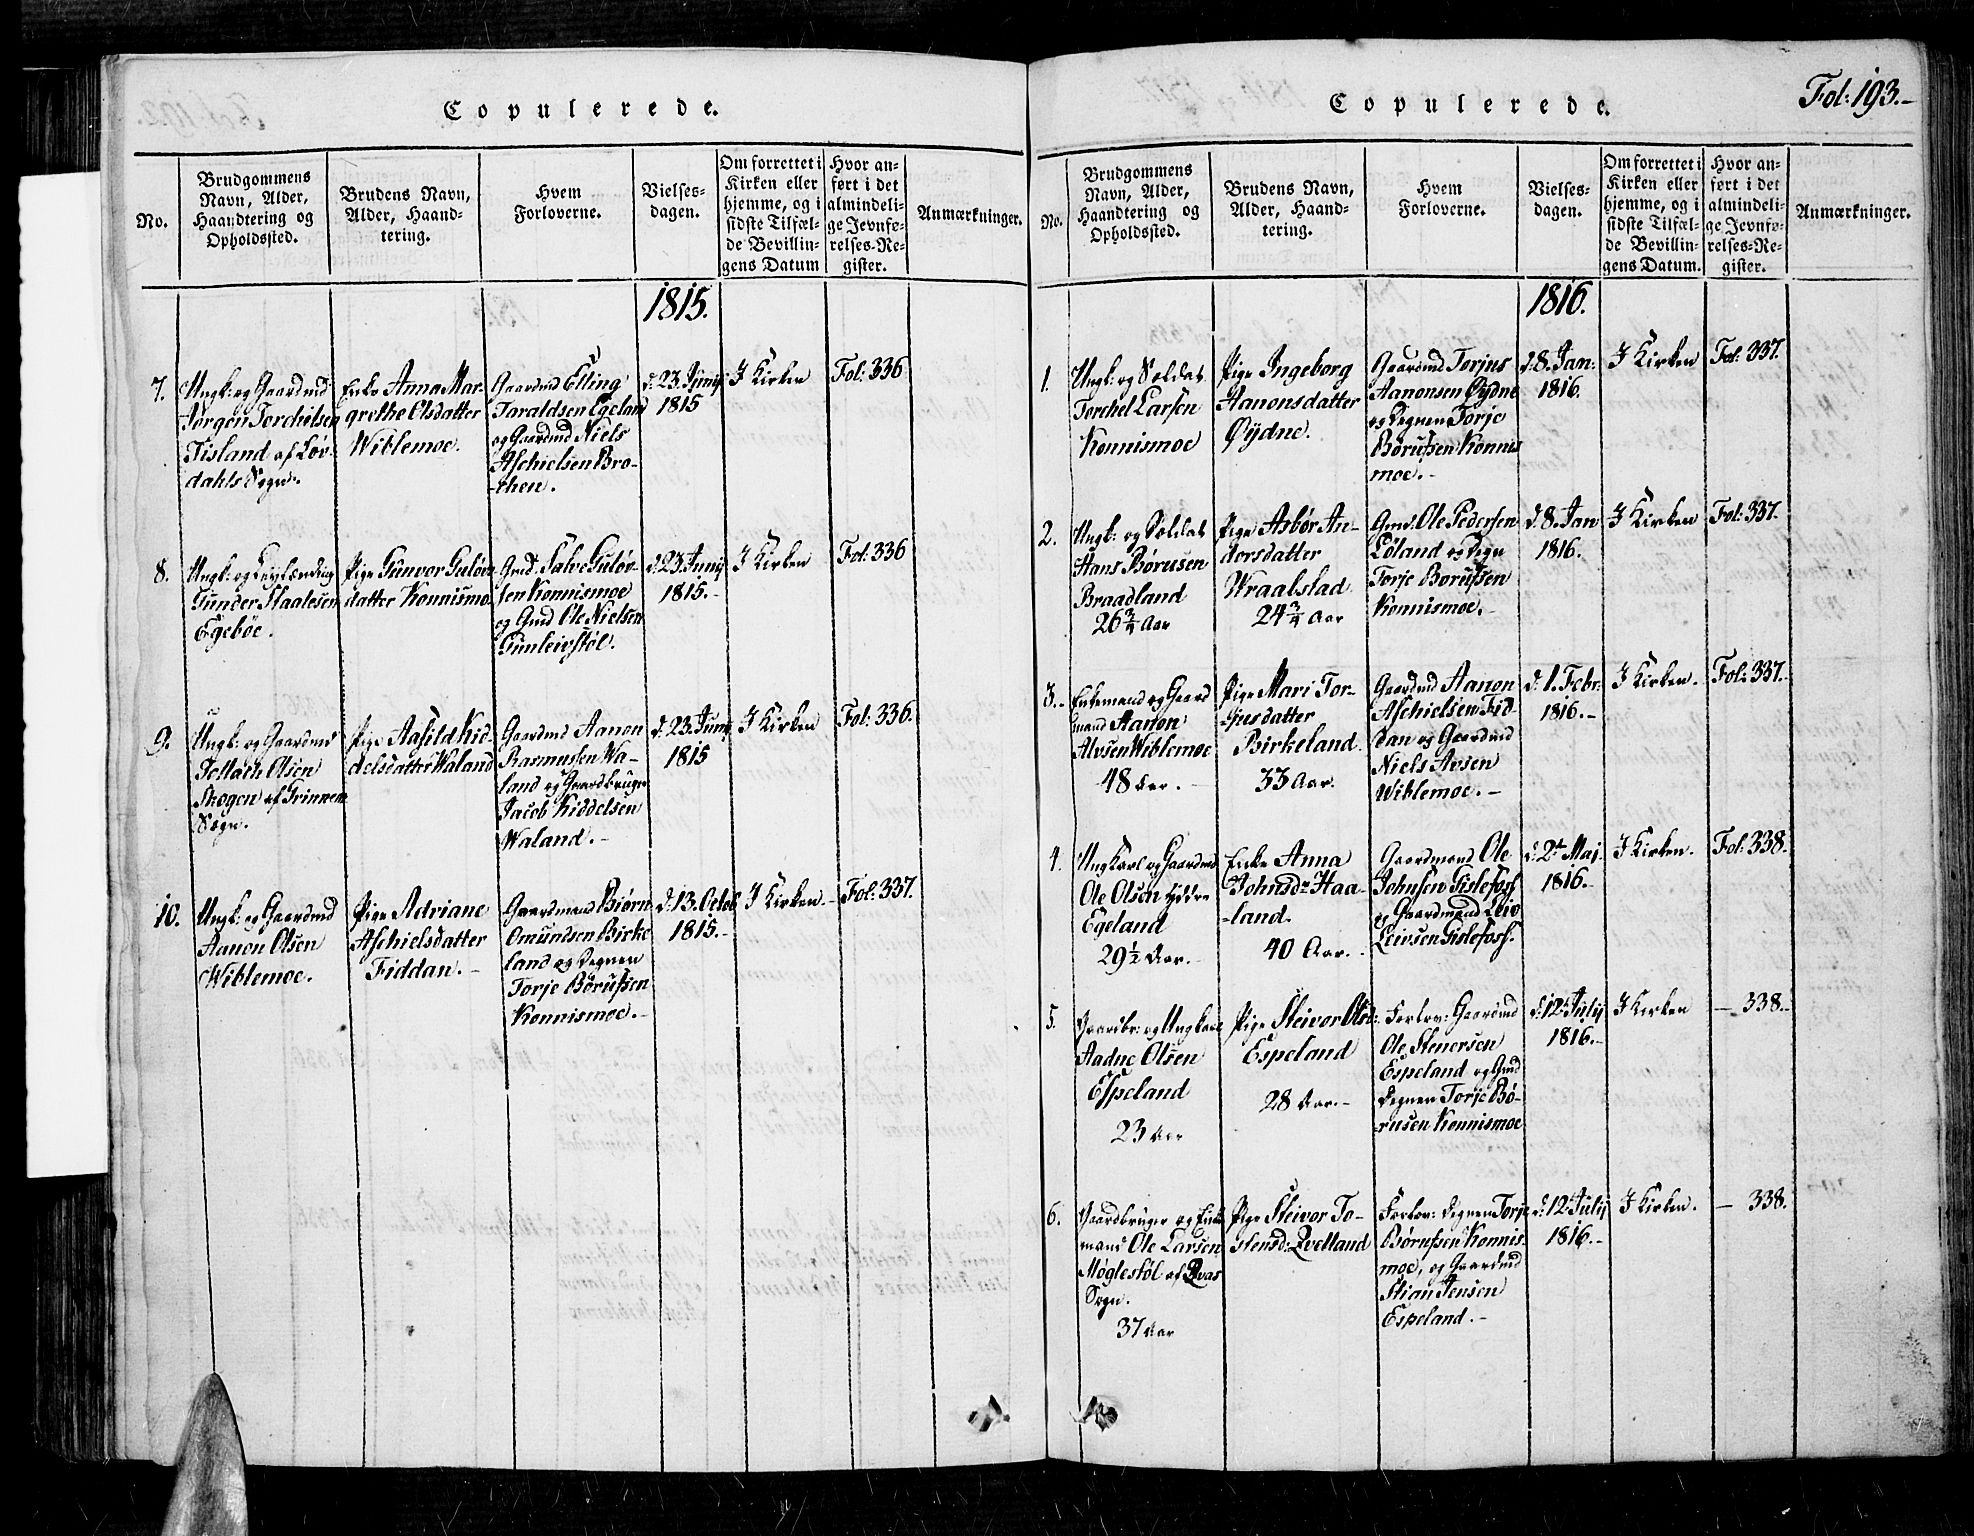 Fol: 193.-
Copulerede.
No.
Brudgommens
Navn, Alder,
Haandtering og
Opholdssted.
Brudens Navn,
Alder, Haand-
tering.
Hvem
Forloverne.
Vielses-
dagen.
Om forrettet i
Kirken eller
hjemme, og i
sidste Tilfæl-
de Bevillin-
gens Datum
Hvor an-
ført i det
almindeli-
ge Jevnfø-
relses-Re-
gister.
Anmærkninger.
1815.
7.
Ungk: og Gaardmd
Jørgen Torchelsen
Tisland af Løv-
dahls Sogn.
Enke Anna Mar-
grethe Olsdatter
Wiblemoe.
Gaardmd Elling
Taraldsen Egeland
og Gaardmd Niels
Aschielsen Bro-
-then.
d: 23. Junij
1815
I Kirken
Fol: 336
8.
Ungk: og Leylænding
Gunder Staalesen
Egebøe.
Pige Gunvor Guløvs
datter Konnismo.
Gmd: Salve Guløv-
sen Konnismoe
og Gmd Ole Nielsen
Gunleivstøl.
d. 23. Junij
1815.-
I Kirken
Fol: 336
9.
Ungk: og Gaardmd
Tellach Olsen
Skogen af Grinnem
Sogn.
Pige Aasild Kid-
delsdatter Waland
Gaardmd Aanon
Rasmussen Wa-
land og Gaardbruger
Jacob Kiddelsen
Waland.-
d. 23. Junij
1815
I Kirken
Fol: 336.
10.
Ungk: og Gaardmd
Aanon Olsen
Wiblemoe.
Pige Adriane
Aschielsdatter
Fiddan.-
Gaardmand Biørn
Omundsen Birke
land og Degnen
Torje Børussen
Konnismoe.-
d. 13. Octob
1815.-
I Kirken.-
Fol: 337.
Copulerede.
No.
Brudgommens
Navn, Alder,
Haandtering og
Opholdssted.
Brudens Navn,
Alder, Haand-
tering.
Hvem
Forloverne.
Vielses-
dagen.
Om forrettet i
Kirken eller
hjemme, og i
sidste Tilfæl-
de Bevillin-
gens Datum.
Hvor an-
ført i det
almindeli-
ge Jevnfø-
relses-Re-
gister.
Anmærkninger.
1816.
1.
Ungk: og Soldat
Torchel Larsen
Konnismoe
Pige Ingeborg
Aanonsdatter
Øydne.
Gaardmd Torjus
Aanonsen Øydne
og Degnen Torje
Børussen Konnis
moe.-
d. 8. Jan:
1816.
I Kirken
Fol: 337.
2.
Ungk: og Soldat
Hans Børusen
Braadland
26 3/4 Aar
Pige Asbør An-
dorsdatter
Wraalstad
24 3/4 Aar
Gmd: Ole Pedersen
Løland og Degn
Torje Børussen
Konnismoe.-
d. 8. Jan
1816.
I Kirken
Fol: 337.
3.-
Enkemand og Gaard
mand Aanon
Alvsen Wiblemoe
48 Aar.-
Pige Mari Tor-
-jusdatter
Birkeland.
33 Aar.
Gaardmd Aanon
Aschielsen Fid-
dan og Gaardmd
Niels Avsen
Wiblemoe.-
d. 1. Febr:
1816.-
I Kirken.
Fol: 337.
4.
Ungkarl og Gaardmd
Ole Olsen yddre
Egeland
29 1/2 Aar.-
Enke Anna
Johnsdr Haa-
-land.
40 Aar.-
Gaardmand Ole
Johnsen Gislefoss
og Gaardmand Leiv
Leivsen Gislefoss.
d: 2t Maj.
1816.-
I Kirken.
Fol: 338.
5.
Gaardbr: og Ungkarl
Aadne Olsen
Espeland
23 Aar
Pige Steivor Olsd:
Espeland
28 Aar.-
Forlov: Gaardmd
Ole Stenersen
Espeland og Gmd
Degnen Torje Bø-
-rusen Konnismoe
d: 12t Julij
1816.-
I Kirken
- 338.-
6.
Gaardbruger og Enke
mand Ole Larsen
Møglestøl af Qvas
Sogn.
37 Aar
Pige Steivor To-
stensd: Qvelland
Forlov: Degnen Torje
Børussen Konnis
moe, og Gaardmd
Stian Jensen
Espeland.-
d: 12t Julij
1816.-
I Kirken.
- 338.